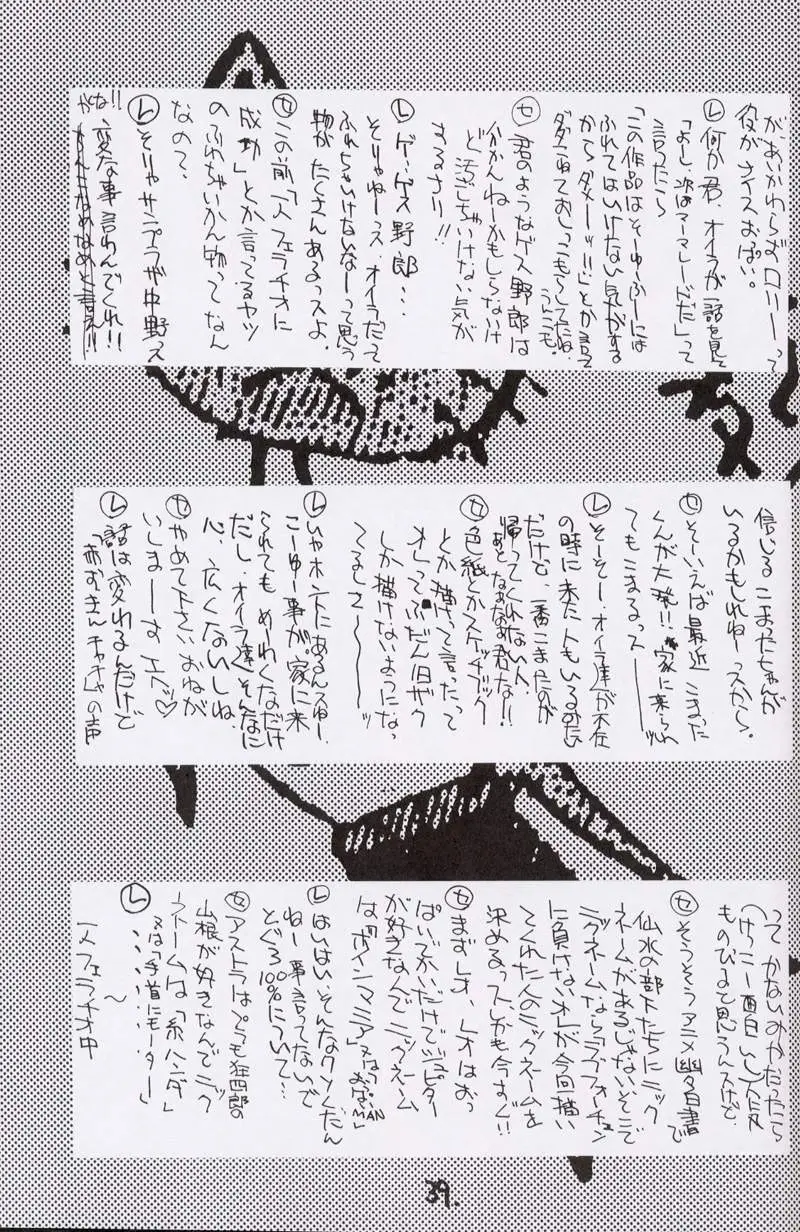 があいかわらずロリーって
役がナイスおっぱい。
レ 何か君、オイラが話を見て
「よし、次はマーマレードだ」って
言ったら
「この作品はそーゆーふーには
ふれてはいけない気がする
からダメーッ!!」とか言って
ダダこねておしっこもらしてたね。
うんこも。
セ 君のようなゲス野郎は
わかんねーかもしらないけ
ど汚しちゃいけない気が
するなり!!
レ ゲ、ゲス野郎…
そりゃねーっス、オイラだって
ふれちゃいけないなーって思う
物がたくさんあるっスよ。
セ この前「一人フェラチオに
成功」とか言ってるヤツ
のふれちゃいかん物ってなん
なの?
レ そりゃサンプラザ中野っス
がな!!変な事言わんでくれ!!
信じるこまったちゃんが
いるかもしれねーっスから。
セ そーいえば最近こまった
くんが大発!!家に来られ
てもこまるっスーーッ
レ そーそー、オイラ達が不在
の時に来た人もいるみたい
だけど、一番こまったのが
帰ってくれない人。
あとななめ君な!!
セ 色紙とかスケッチブック
とか描けって言ったって
オレってふだん旧ザク
しか描けないようになっ
てるしさーーーーッ
レ いやホントにあるんスゆー、
こーゆー事が。家に来
られてもめーわくなだけ
だし、オイラ達そんなに
心、広くないしね
セ やめて下さいおねが
いしまーす エへ♡
レ 話は変わるんだけど
「赤ずきんチャチャ」の声
ってかないみかだったら
(けっこー面白いし)人気
ものびるて思うんスけど。
セ そうそうアニメ幽☆白書で
仙水の部下たちにニック
ネームがあるじゃないそこで
ニックネームならラブフォーチュン
に負けないオレが今回描い
てくれた人のニックネームを
決めるっスしかも今すぐ!!
セ まずレオ、レオはおっ
ぱいでかいだけでジュピター
が好きなんでニックネーム
は「ボインマニア」又は「おっぱいMAN」
レ はいはい、そんなクソくだん
ねー事言ってないで
とぐろ100%について…
セ アストラはぷらも狂四郎の
山根が好きなんでニック
ネームは「糸ハンダ」
又は「手首にモーター」
レ ……………
一人フェラチオ中
〜
39.